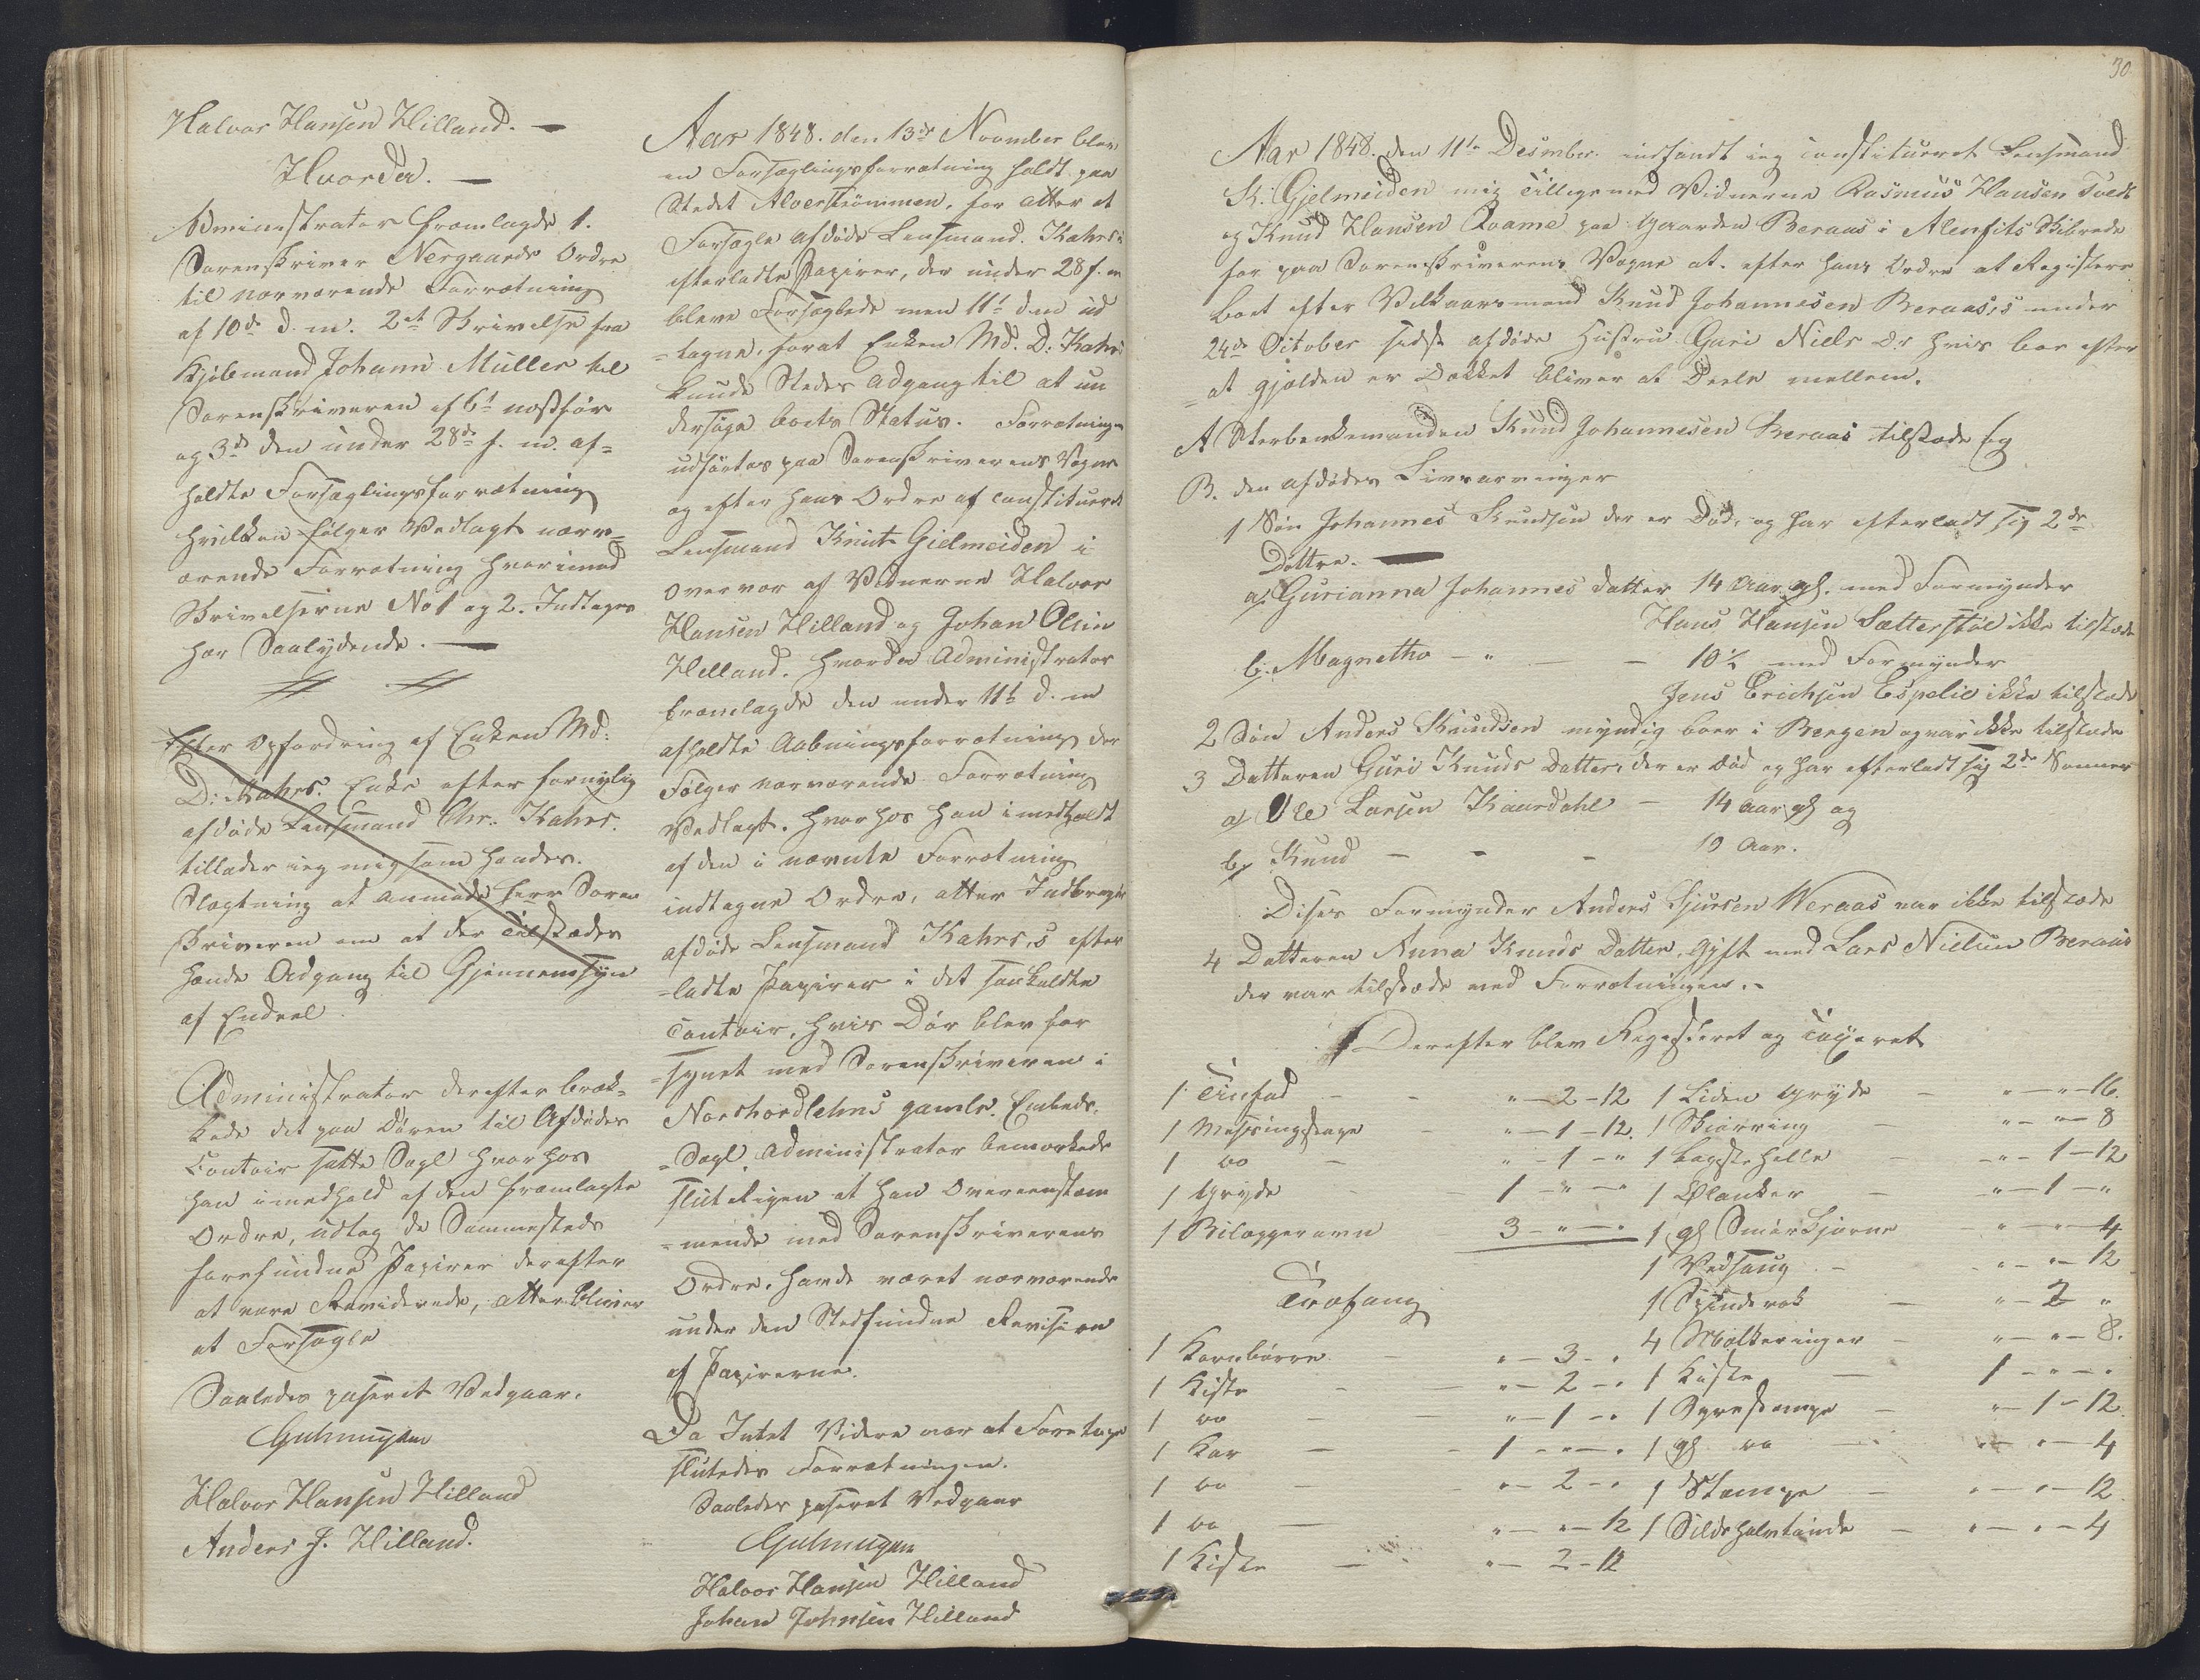 Halvor Hansen Hilland. —
Hvorda. —
Administrator fremlagde 1.
Sorenskriver Nergaards Ordre
til nærværende Forretning
af 10de d. m. 2et Skrivelse fra
Kjøbmand Johann Müller til
Sorenskriveren af 6t næstfør
og 3de den under 28de f. m. af=
holdte Forseglingsforretning
hvilken følger Vedlagt nærv=
ærende Forretning hvorimod
Skrivelserne No 1 og 2. Indtages
her Saalydende. —
Efter Opfordring af Enken Md:
D: Kahrs. Enke efter fornylig
afdøde Lensmand Chr. Kahrs.
tillader ieg mig som hendes.
Slægtning at anmode Herr Soren
skriveren om at der Tilstædes
hende Adgang til Gjennemsyn
af Endeel
Administrator derefter bræk=
kede det paa Døren til Afdødes
Contoir satte Segl hvorhos
han i medhold af den fremlagte
Ordre, udtog de Sammesteds
forefundne Papirer derefter
at være Reviderede, atter bliver
at Forsegle
Saaledes passeret Vedgaar.
Halvor Hansen Hilland
Anders J. Hilland.
Aar 1848. den 13de Novomber blev
en Forseglingsforretning holdt paa
Stedet Alverstrømmen, for atter at
Forsegle afdøde Lensmand. Kahrs's
efterladte Papirer, der under 28 f. m
bleve Forseglede men 11te dm ud
=tagne, forat Enken Md. D: Kahrs
kunde Stedes adgang til at un
dersøge boets Status. Forretningen
udførtes paa Sorenskriverens Vegne
og efter hans Ordre af constitueret
Lensmand Knut Gielmeiden i
overvær af Vidnerne Halvor
Hansen Hilland og Johan Olsen
Hilland. Hvorda Administrator
fremlagde den under 11te d. m
afholdte Aabningsforretning der
Følger nærværende Forretning
Vedlagt. hvorhos han i medhold
af den i nævnte Forretning
indtagne Ordre, atter Indbragte
afdøde Lensmand Kahrs,s efter
=ladte Papirer i det saakaldte
Contoir, hvis Dør blev for
=synet med Sorenskriveren i
Nordhordlehns gamle Embeds,
=Segl Administrator bemærkede
sluteligen at han Overeenstem
=mende med Sorenskriverens
Ordre, havde været nærværende
under den Stedfundne Revision
af Papirerne.
Da Intet Videre var at Foretage
slutedes Forretningen.
Saaledes passeret Vedgaar
Halvor Hansen Hilland
Johan Johnsen Hilland
30
Aar 1848. den 11te Desember. indfandt ieg constitueret Lensmand
K. Gjelmeiden mig Tilligemed Vidnerne Rasmus Hansen Tvedt
og Knud Hansen Qvame paa Gaarden Beraas i Alenfits Skibrede
for paa Sorenskriverens Vegne at. efter hans Ordre at Registere
boet efter Velkaarsmand Knud Johannesen Beraas,s under
24de October sidst afdøde Hustru Guri Niels Dr hvis boe efter
=at gjælden er Dækket bliver at Deele mellem.
A Sterbenkemanden Knud Johannesen Beraas tilstede Og
B. den afdødes Livsarvinger
1 Søn Johannes Knudsen der er Død, og har efterladt sig 2de
Døttre. —
a/ Gurianna Johannes datter 14 Aar gl. med Formynder
Hans Hansen Sætterstøl ikke tilstede
b/. Magnetha — " — — 10½ med Formynder
Jens Erichsen Espelie ikke tilstede
2 Søn Anders Knudsen myndig boer i Bergen og var ikke tilstede
3 Datteren Guri Knuds datter, der er død og har efterladt sig 2de Sønner
a/ Ole Larsen Kaardahl — 14 Aar gl og
b/ Knud — - - 10 Aar.
Disses Formynder Anders Sjursen Weraas var ikke tilstæde
4 Datteren Anna Knuds Datter, gift med Lars Nielsen Beraas
der var tilstæde ved Forretningen. -
Derefter blev Registeret og Taxeret
1 Tinfad - - " — 2 - 12
1 Messingstage - " — 1 - 12.
1 do — " - 1 - "
1 Gryde - 1 - " - "
1 Bilæggerovn 3 - " - "
Træfang
1 Kornbørre — " — 3 - "
1 Kiste - — " — 2 - "
1 do - — " — 1 - "
1 Kar — - 1 - " - "
1 do — " — 2 - "
1 do — " — " — 12
1 Kiste — " — 2 - 12
1 Liden Gryde — " — " — 16.
1 Skiørring — " — " — 8
1 bagstehelle — " — 1 — 12
1 Ølanker — " — 1 — "
1 gl Smørkjærne - " — " — 4
1 Vedsaug - " — " — 12
1 Spinderok — " — 2 "
4 Mælkeringer — " — " — 8.
1 Kiste — 1 - " - "
1 Syrestampe — " — 1 — 12.
1 gl do — " — " — 4
1 Stampe — " — " — 12
1 Sildehalvtønde — " — " — 4